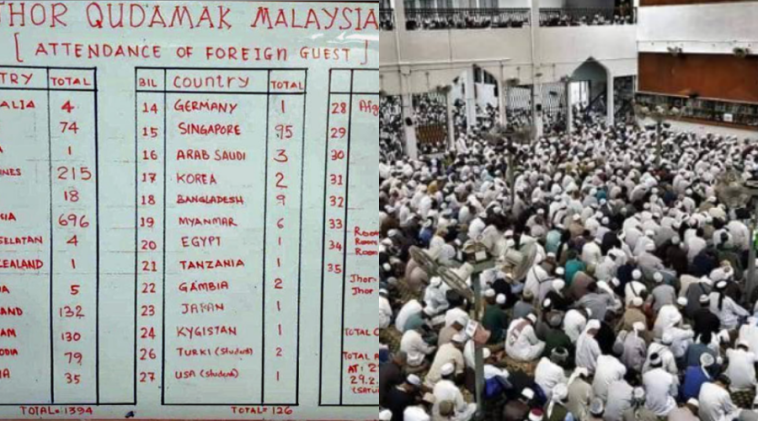 THOR QUDAMAK MALAYSIA
[ ATTENDANCE OF FOREIGN GUEST ]
TRY TOTAL
ALIA 4
74
1
NES 215
18
IA 696
SELATAN 4
ZEALAND 1
A 5
AND 132
AM 130
ODIA 79
A 35
TOTAL= 1394
BIL COUNTRY TOTAL
14 GERMANY 1
15 SINGAPORE 95
16 ARAB SAUDI 3
17 KOREA 2
18 BANGLADESH 9
19 MYANMAR 6
20 EGYPT 1
21 TANZANIA 1
22 GAMBIA 2
23 JAPAN 1
24 KYGISTAN 1
26 TURKI (Student) 2
27 USA (Student) 1
TOTAL= 126
28 Afg
29
30
31
32
33
34
35
Jhor-
Jhor
TOTAL C
TOTAL
AT: 2
29.2.